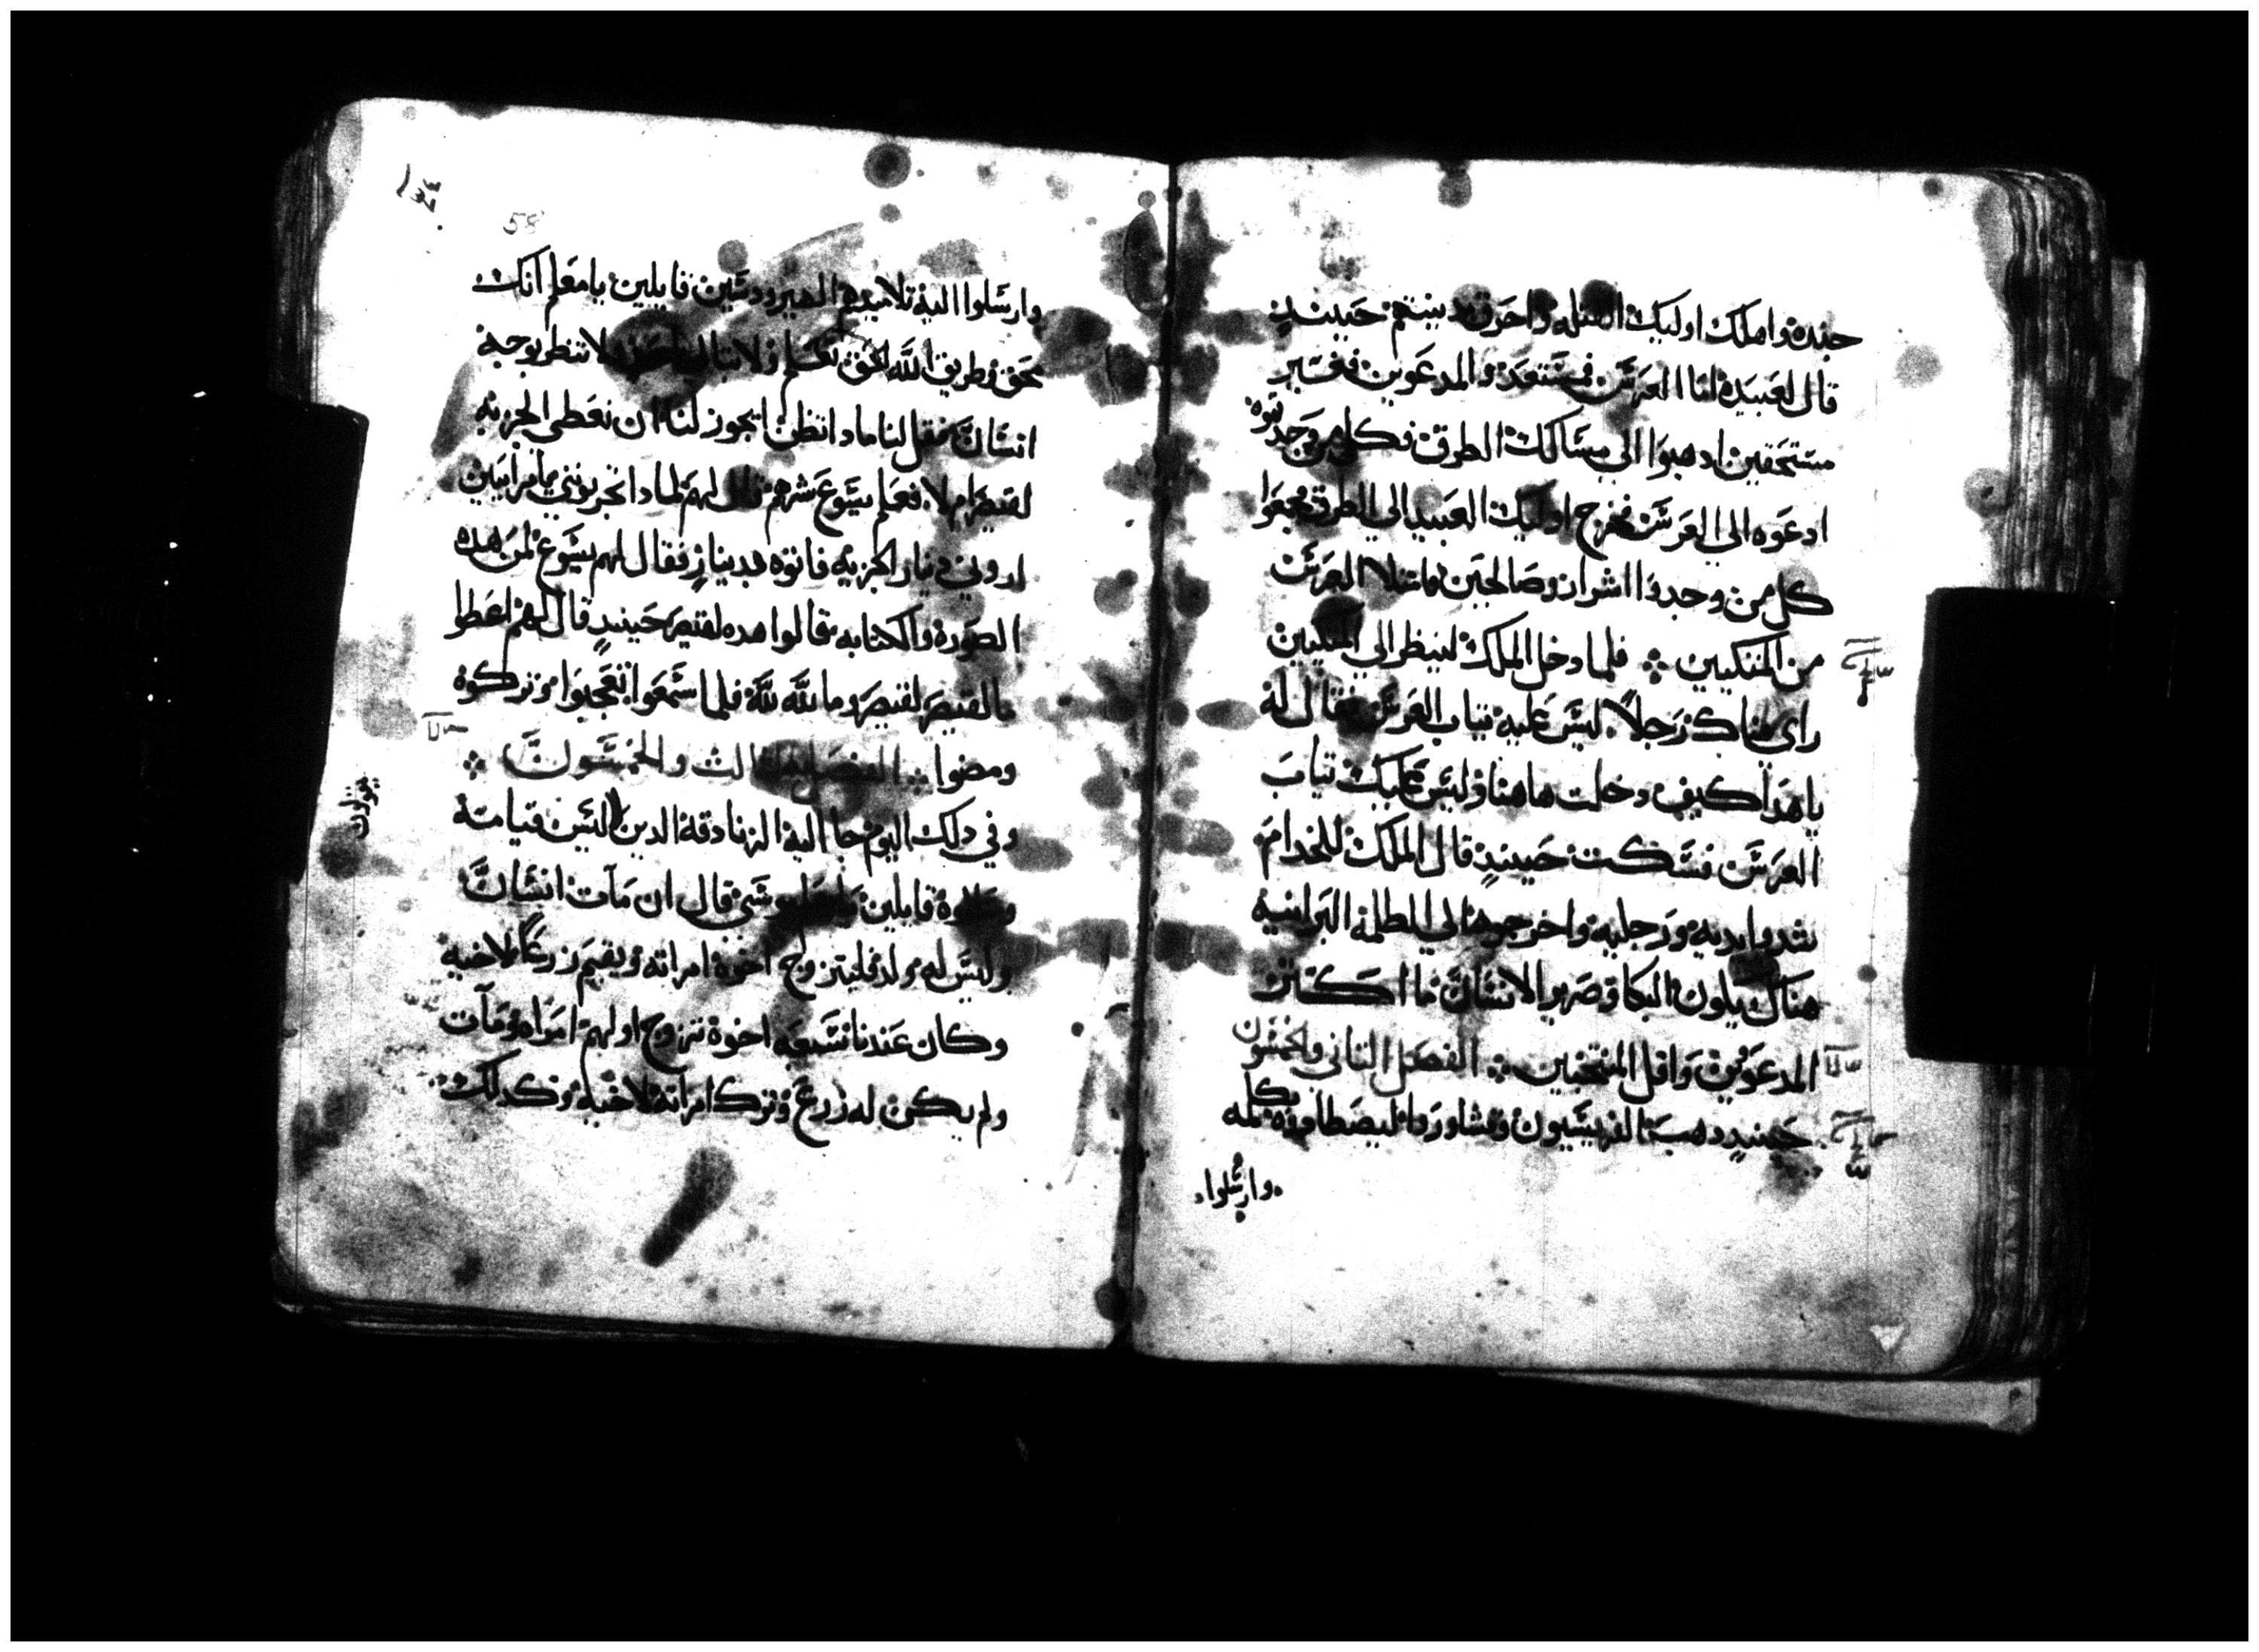 جنده واهلك اوليك القتله واحرق مدينتهم حينيدٍ
قال لعبيده اما العرس فمستعد والمدعوين فغير
مستحقين ادهبوا الي مسالك الطرق فكل من وجدتوه
ادعوه الي العرس فخرج اوليك العبيد الي الطرق فجمعوا
كل من وجدوا اشرار وصالحين فامتلا العرس
من المتكيين فلما دخل الملك لينظر الي المتكيين
راي هناك رجلاً ليس عليه تياب العرس فقال له
ياهدا كيف دخلت هاهنا وليس عليك تياب
العرس فسكت حينيدٍ قال الملك للخدام
شدوا يديه ورجليه واخرجوه الي الظلمه البرانيه
هناك يكون البكا وصرير الاسنان ما اكتر
المدعوين واقل المنتخبين الفصل التاني والخمسون
حينيدٍ دهبة الفريسيون وتشاوروا ليصطادوه بكلمه
وارسلوا
58
وارسلوا اليه تلاميدهم الهيرودسيين قايلين يامعلم انك
محق وطريق الله بالحق تعلم ولا تبالي باحد ولا تنظر بوجه
انسان فقل لنا مادا تظن ايجوز لنا ان نعطي الجزيه
لقيصر ام لا فعلم يسوع شرهم قال لهم لمادا تجربونني يامرايين
اروني دينار الجزيه فاتوه بدينار فقال لهم يسوع لمن هده
الصوره والكتابه فقالوا هده لقيصر حينيدٍ قال لهم اعطوا
مالقيصر لقيصر وما لله لله فلما سمعوا تعجبوا وتركوه
ومضوا الفصل التالت والخمسون
وفي دلك اليوم جا اليه الزنادقة الدين ليس قيامة
يقولون
وسالوه قايلين يامعلم موسى قال ان مات انسان
وليس له ولد فليتزوج اخوه امراته ويقيم زرعاً لاخيه
وكان عندنا سبعه اخوة تزوج اولهم امراه ومات
ولم يكن له زرع وترك امراته لاخيه وكدلك